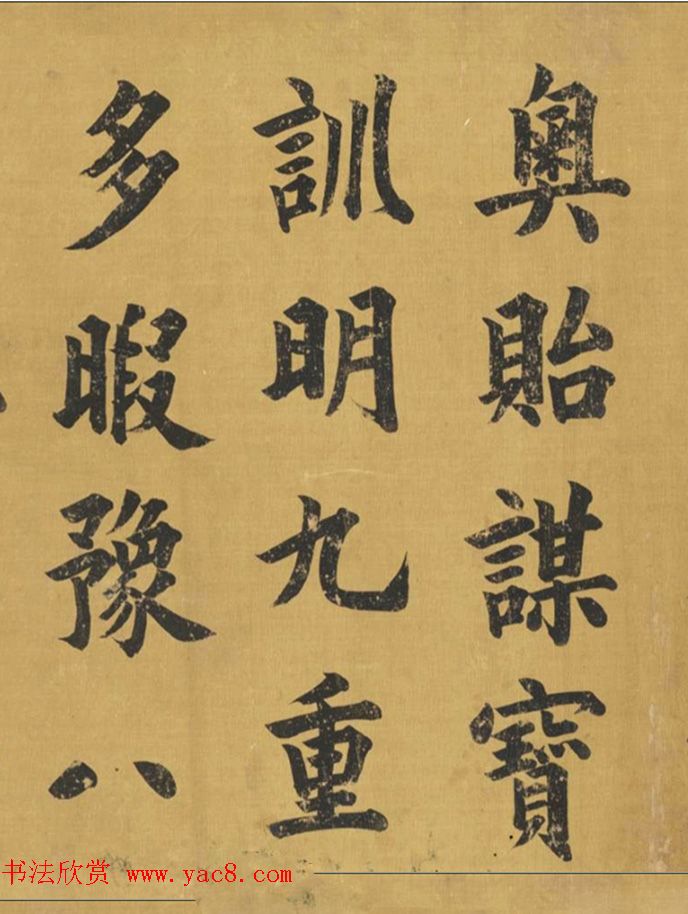 奧貽謀寶
訓明九重
多暇豫八
书法欣赏 www.yac8.com